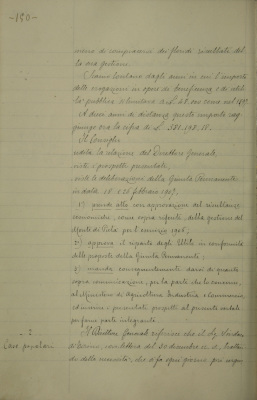 -150-
meno di compiacersi dei floridi risultati del-
la sua gestione.
Siamo lontani dagli anni in cui l'importo
delle erogazioni in opere di beneficenza e di utili-
tà pubblica si limitava a L.
A dieci anni di distanza questo importo rag-
giunge ora la cifra di L.
Il Consiglio
udita la relazione del Direttore Generale,
visti i prospetti presentati,
viste le deliberazioni della Giunta Permanente
in data 16 e 23 febbraio 1907,
1) prende atto con approvazione del risultato
economico, come sopra riferito, della gestione del
Monte di Pietà per l'esercizio 1906;
2) approva il riparto degli Utili in conformità
delle proposte della Giunta Permanente;
3) manda conseguentemente darsi di quanto
sopra comunicazione, per la parte che lo concerne,
al Ministero di Agricoltura Industria e Commercio,
ed inserirsi i presentati prospetti al presente verbale
per farne parte integrante.
Case popolari
Il Direttore Generale riferisce che il Sig. Sindaco
di con lettera del 30 dicembre u. s.
di della necessità, che si fa ogni giorno più urgen-